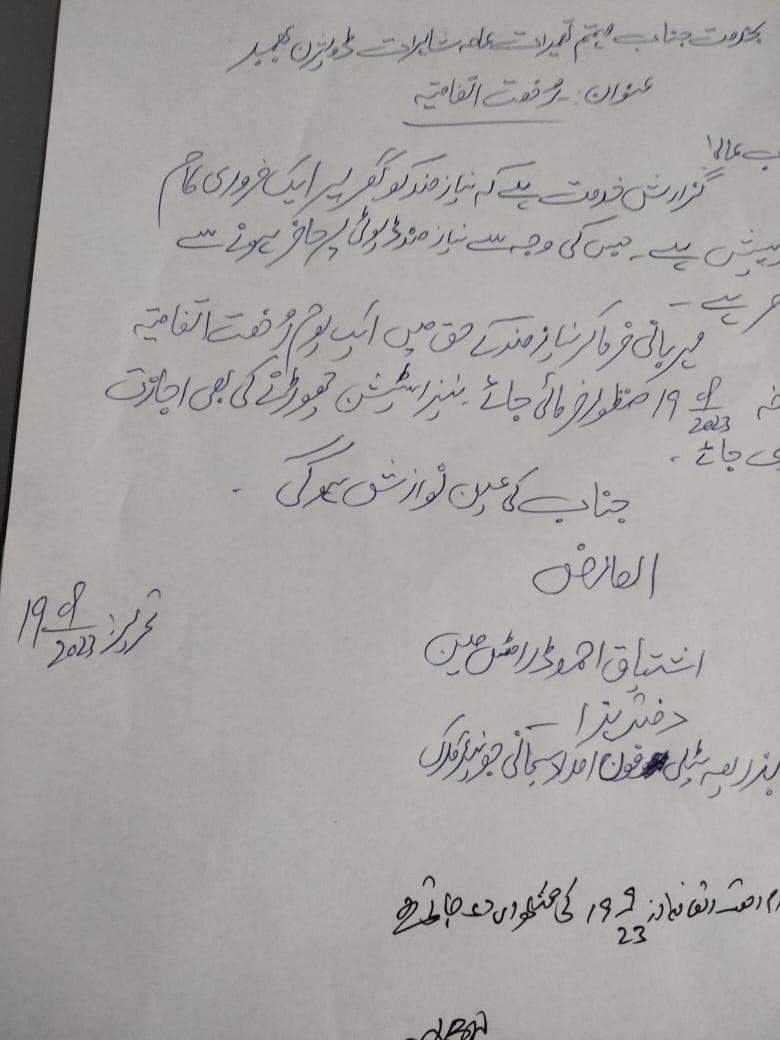 بخدمت جناب مہتمم تعمیرات عامہ شاہرات ڈویژن بھمبر
عنوان:۔ رخصت اتفاقیہ
ب عالی!
گزارش خدمت ہے کہ نیازمند کو گھر پر ایک ضروری کام
درپیش ہے۔ جس کی وجہ سے نیازمند ڈیوٹی پر حاضر ہونے سے
ہے۔
مہربانی فرما کر نیازمند کے حق میں ایک یوم رخصت اتفاقیہ
19 9/2023 منظور فرمائی جائے۔ نیز اسٹیشن چھوڑنے کی بھی اجازت
دی جائے۔
جناب کی عین نوازش ہوگی۔
العارض
تحریر: 19 9/2023
اشتیاق احمد ڈرافٹس مین
دفتر ہذا۔
بذریعہ ٹیلی فون جونیئر کلرک
رخصت اتفاقیہ 19 9/23 کی منظوری دی جاتی ہے